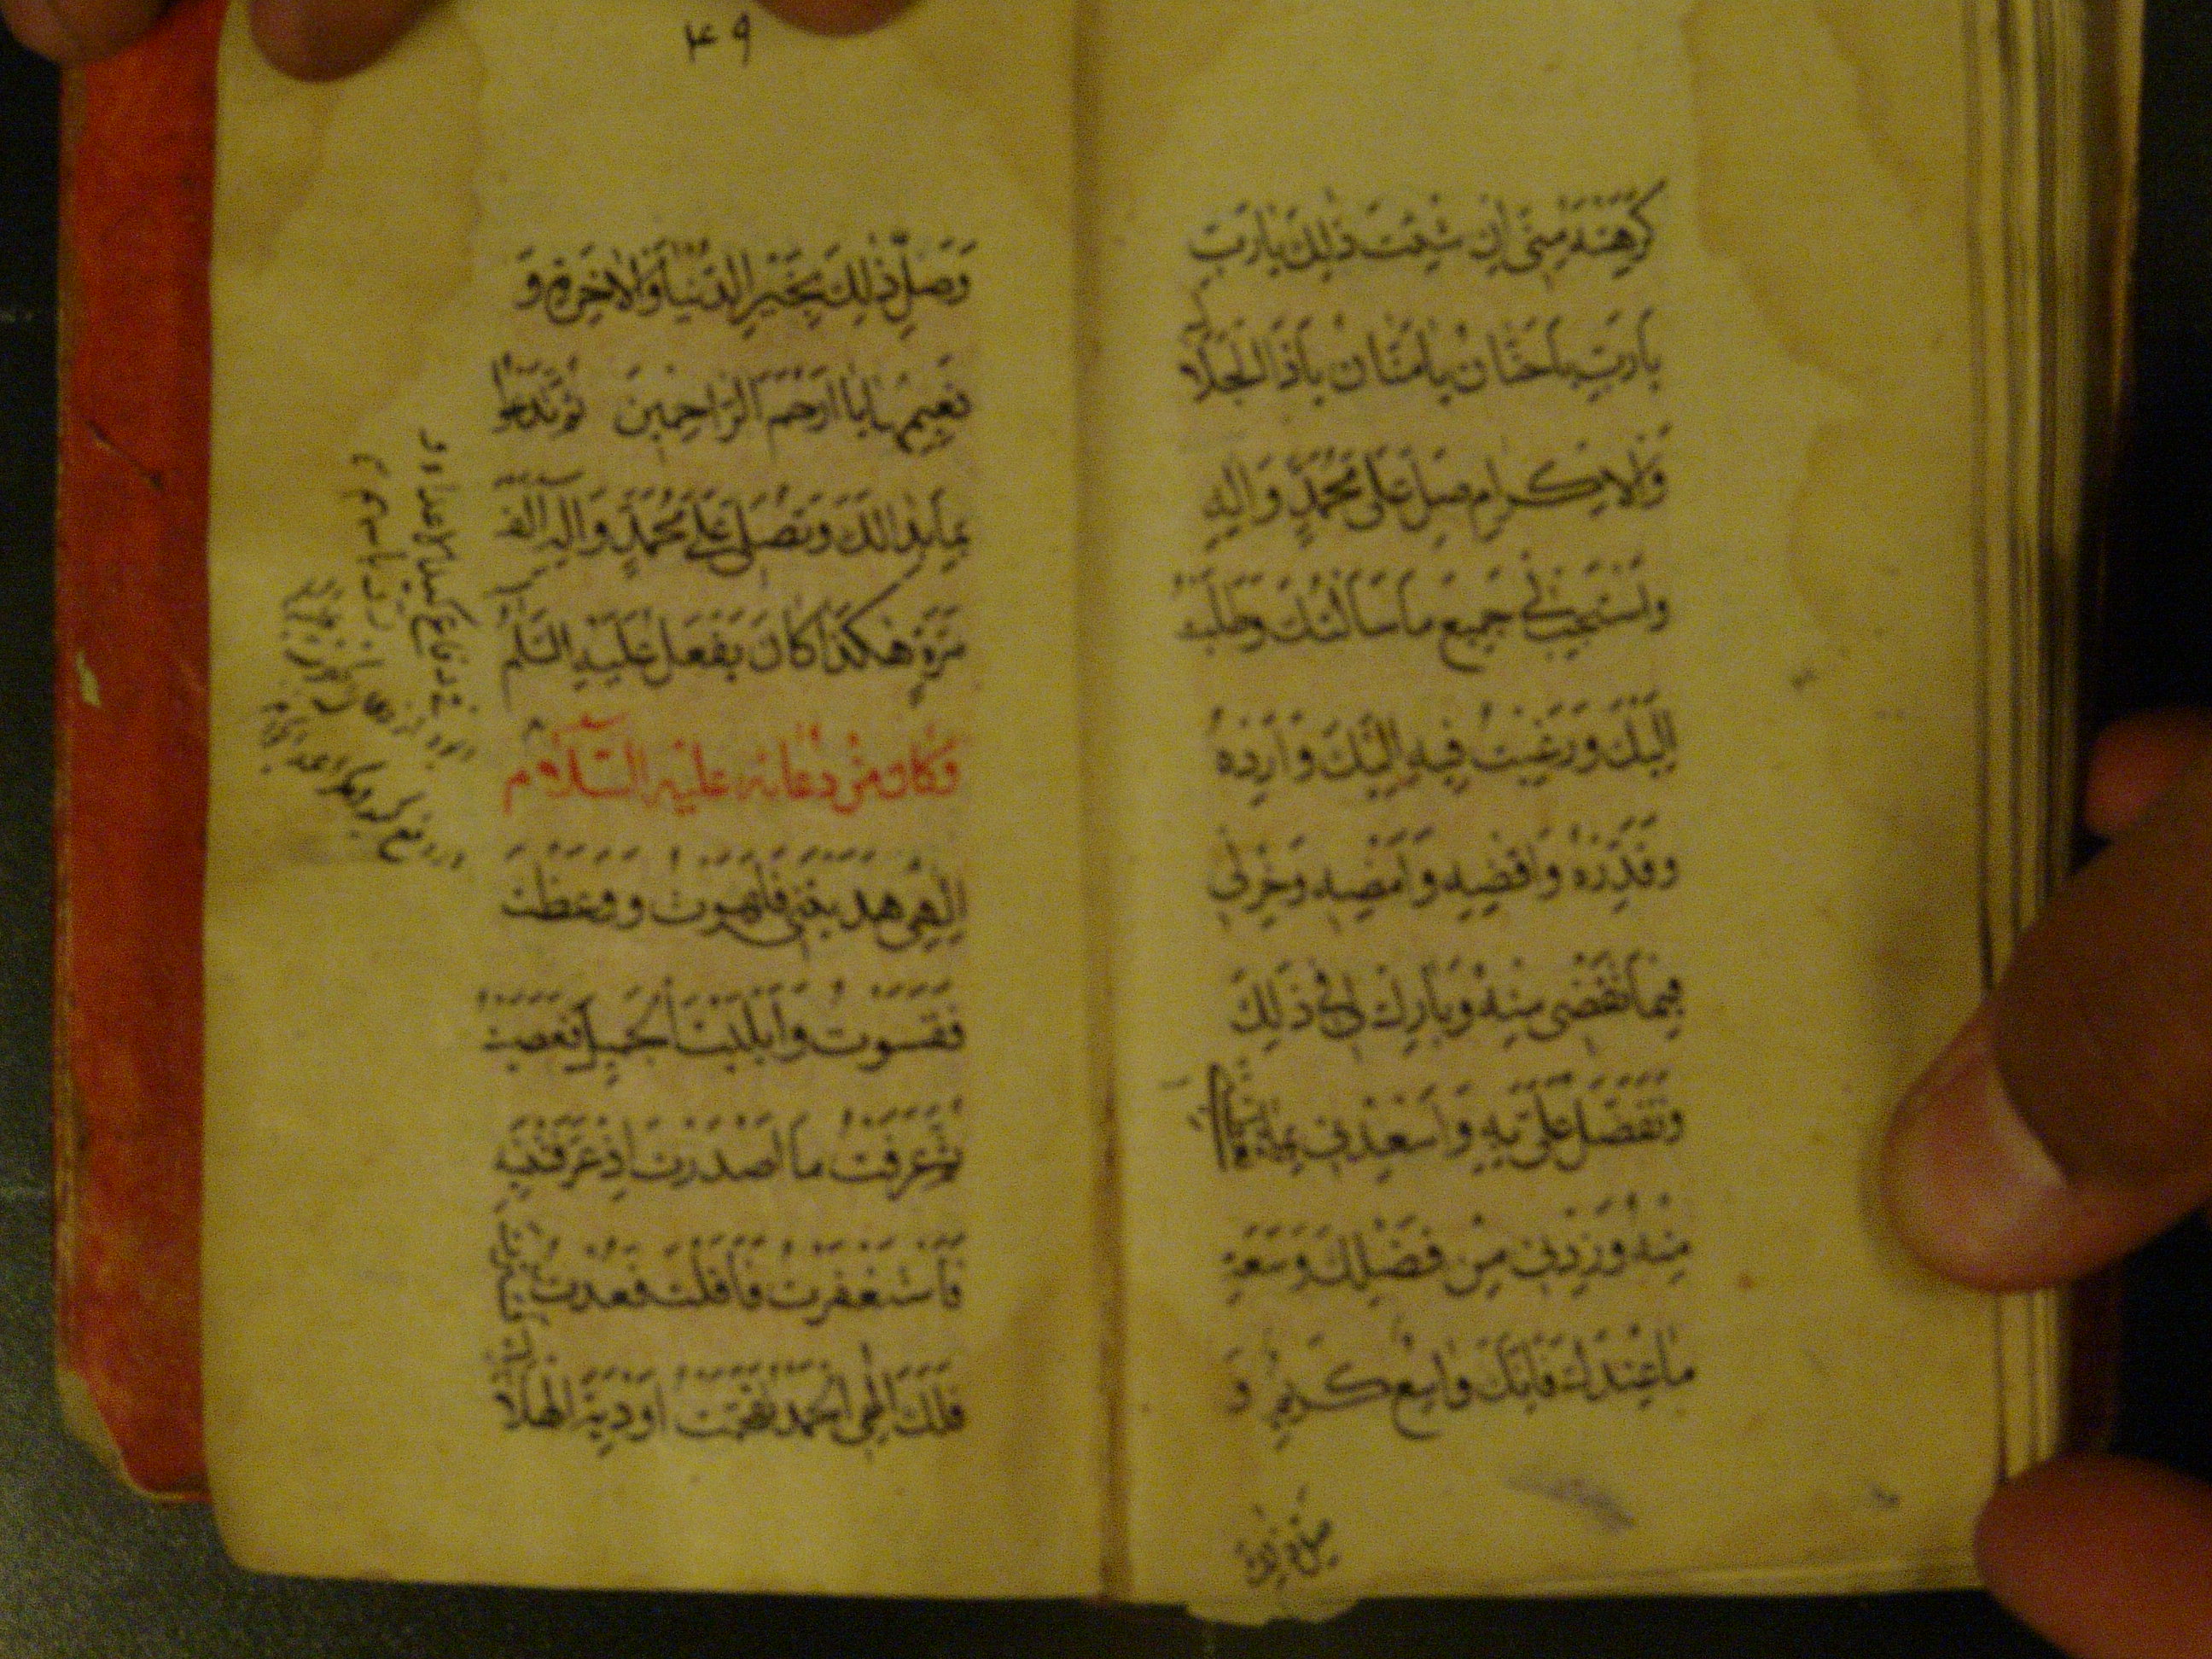 كَرِهْتَهُ مِنّي اِنْ شِئْتَ ذٰلِكَ يا رَبِّ
يا رَبِّ يا حَنّانُ يا مَنّانُ يا ذَا الْجَلالِ
وَالْاِكْرامِ صَلِّ عَلى مُحَمَّدٍ وَالِهِ
وَاسْتَجِبْ لي جَميعَ ما سَاَلْتُكَ وَطَلَبْتُ
اِلَيْكَ وَرَغِبْتُ فيهِ اِلَيْكَ وَاَرِدْهُ
وَقَدِّرْهُ وَاقْضِهِ وَاَمْضِهِ وَخِرْ لي
فيما تَقْضي مِنْهُ وَبارِكْ لي في ذٰلِكَ
وَتَفَضَّلْ عَلَيَّ بِهِ وَاَسْعِدْني بِما تُعْطيني
مِنْهُ وَزِدْني مِنْ فَضْلِكَ وَسَعَةِ
ما عِنْدَكَ فَاِنَّكَ واسِعٌ كَريمٌ وَ
۴۹
وَصِلْ ذٰلِكَ بِخَيْرِ الدُّنْيا وَالْاخِرَةِ وَ
نَعيمِها يا اَرْحَمَ الرّاحِمينَ ثُمَّ تَدْعُوا
بِما بَدا لَكَ وَتُصَلّي عَلى مُحَمَّدٍ وَالِهِ اَلْفَ
مَرَّةٍ هٰكَذا كانَ يَفْعَلُ عَلَيْهِ السَّلَم
وَكانَ مِنْ دُعائِهِ عَلَيْهِ السَّلامُ
اِلٰهي هَدَيْتَني فَلَهَوْتُ وَوَعَظْتَ
فَقَسَوْتُ وَاَبْلَيْتَ الْجَميلَ فَعَصَيْتُ
ثُمَّ عَرَفْتُ ما اَصْدَرْتَ اِذْ عَرَّفْتَنيهِ
فَاسْتَغْفَرْتُ فَاَقَلْتَ فَعُدْتُ فَسَتَرْتَ
فَلَكَ اِلٰهي الْحَمْدُ تَقَحَّمْتُ اَوْدِيَةَ الْهَلاكِ